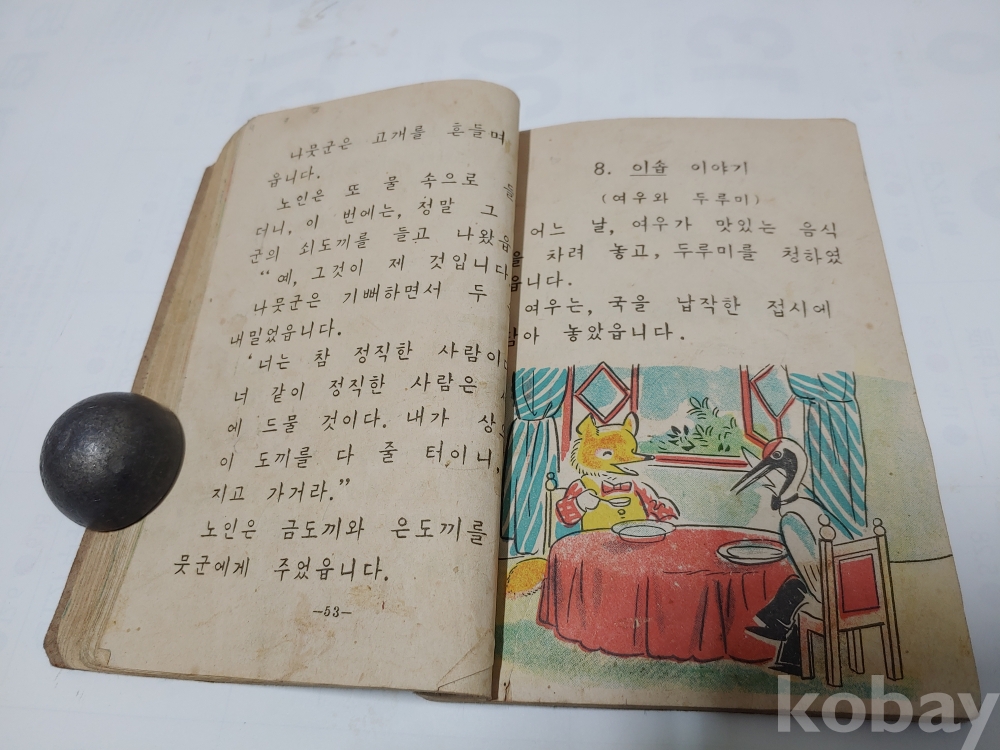 나뭇군은 고개를 흔들며
읍니다.
노인은 또 물 속으로 들
더니, 이 번에는, 정말 그
군의 쇠도끼를 들고 나왔읍
“예, 그것이 제 것입니다
나뭇군은 기뻐하면서 두
내밀었읍니다.
‘너는 참 정직한 사람이다
너 같이 정직한 사람은
에 드물 것이다. 내가 상
이 도끼를 다 줄 터이니,
지고 가거라.”
노인은 금도끼와 은도끼를
뭇군에게 주었읍니다.
—53—
8. 이솝 이야기
(여우와 두루미)
어느 날, 여우가 맛있는 음식
을 차려 놓고, 두루미를 청하였
읍니다.
여우는, 국을 납작한 접시에
담아 놓았읍니다.
kobay